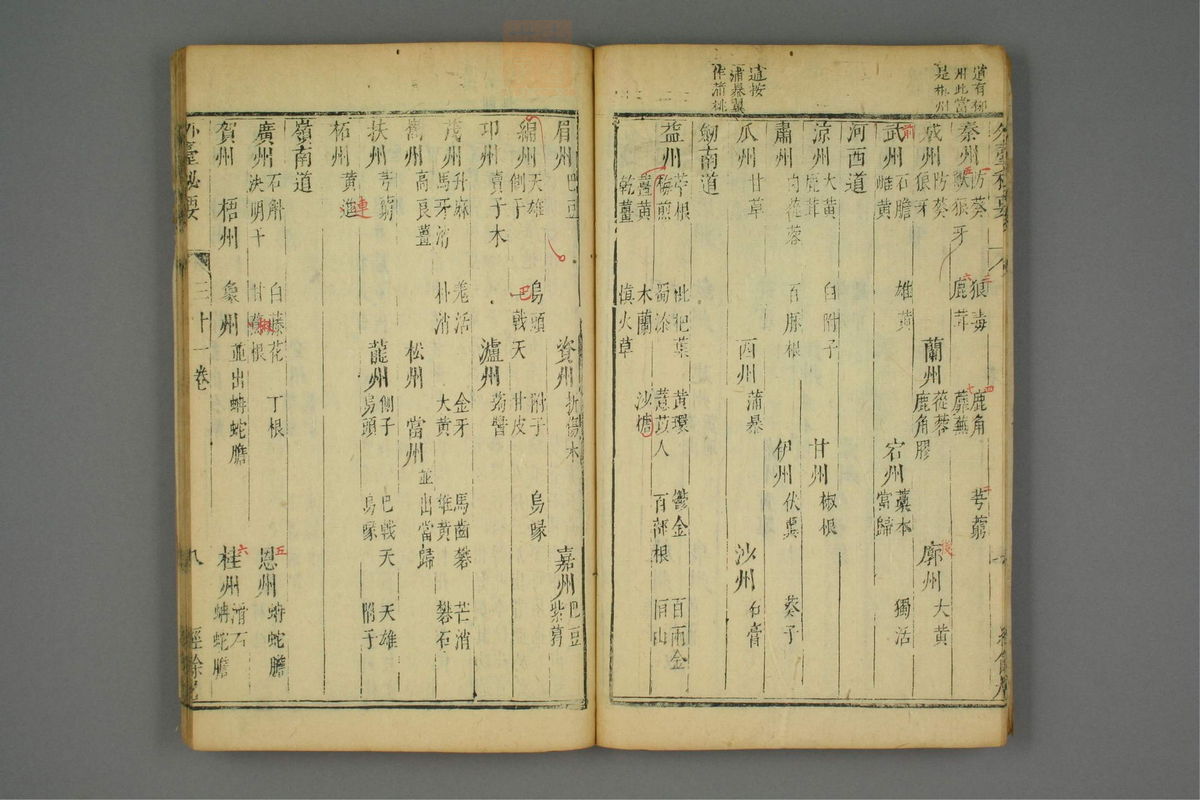 道有柳
州此當
是郴州
秦州 防葵 狼毒 鹿角 芎藭
獸狼牙 鹿茸 蘼蕪
成州 防葵 狼牙 蘭州 蓯蓉 鹿角膠 廓州 大黃
武州 石膽 雌黃 雄黃 宕州 藁本 當歸 獨活
河西道
涼州 大黃 鹿茸 白附子 甘州 椒根
肅州 肉蓯蓉 百脈根 伊州 伏翼 葵子
道按
蒲暴翼
作蒲桃
瓜州 甘草 西州 蒲暴 沙州 石膏
劍南道
益州 苧根 枇杷葉 黃環 鬱金 百兩金
梅煎 蜀漆 薏苡人 百部根 恒山
薑黃 木蘭 沙糖
乾薑 滇火草
眉州 巴豆 資州 折傷木 嘉州 巴豆 紫葛
綿州 天雄 烏頭 附子 烏喙
側子 巴戟天 甘皮
邛州 賣子木 瀘州 蒟醬
茂州 升麻 羌活 金牙 馬齒礬 芒消
馬牙消 朴消 大黃 雄黃 礬石
巂州 高良薑 松州 當州 並出當歸
扶州 芎藭 龍州 側子 巴戟天 天雄
烏頭 烏喙 附子
柘州 黃連
嶺南道
廣州 石斛 白藤花 丁根 恩州 蚺蛇膽
決明子 甘椒根
賀州 梧州 象州 並出蚺蛇膽 桂州 滑石 蚺蛇膽
外臺秘要 三十一卷 八 經餘居